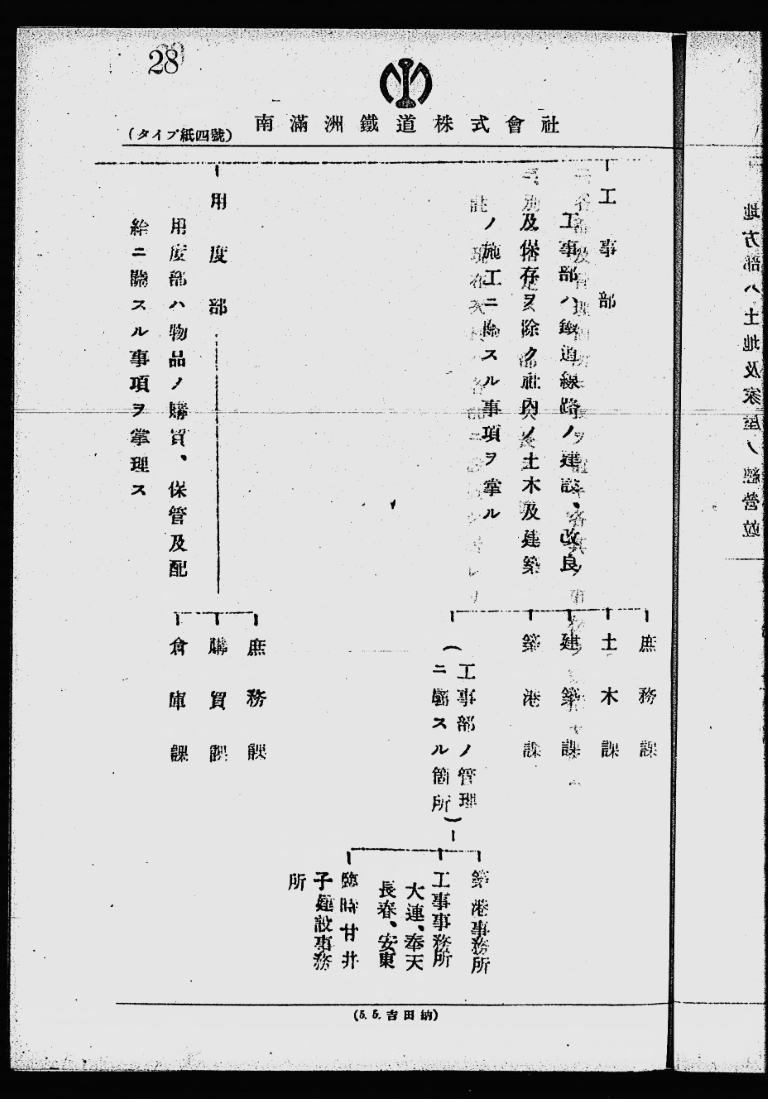 28
南滿洲鐵道株式會社
(タイプ紙四號)
地方部ハ土地及家屋ノ經營竝
工事部
工事部ハ鐵道線路ノ建設、改良
及保存ヲ除ク社内ノ土木及建築
ノ施工ニ關スル事項ヲ掌ル
庶務課
土木課
建築課
築港課
(工事部ノ管理
ニ屬スル箇所)
築港事務所
工事事務所
大連、奉天
長春、安東
臨時甘井
子建設事務
所
用度部
用度部ハ物品ノ購買、保管及配
給ニ關スル事項ヲ掌理ス
庶務課
購買課
倉庫課
(5. 5. 吉田納)